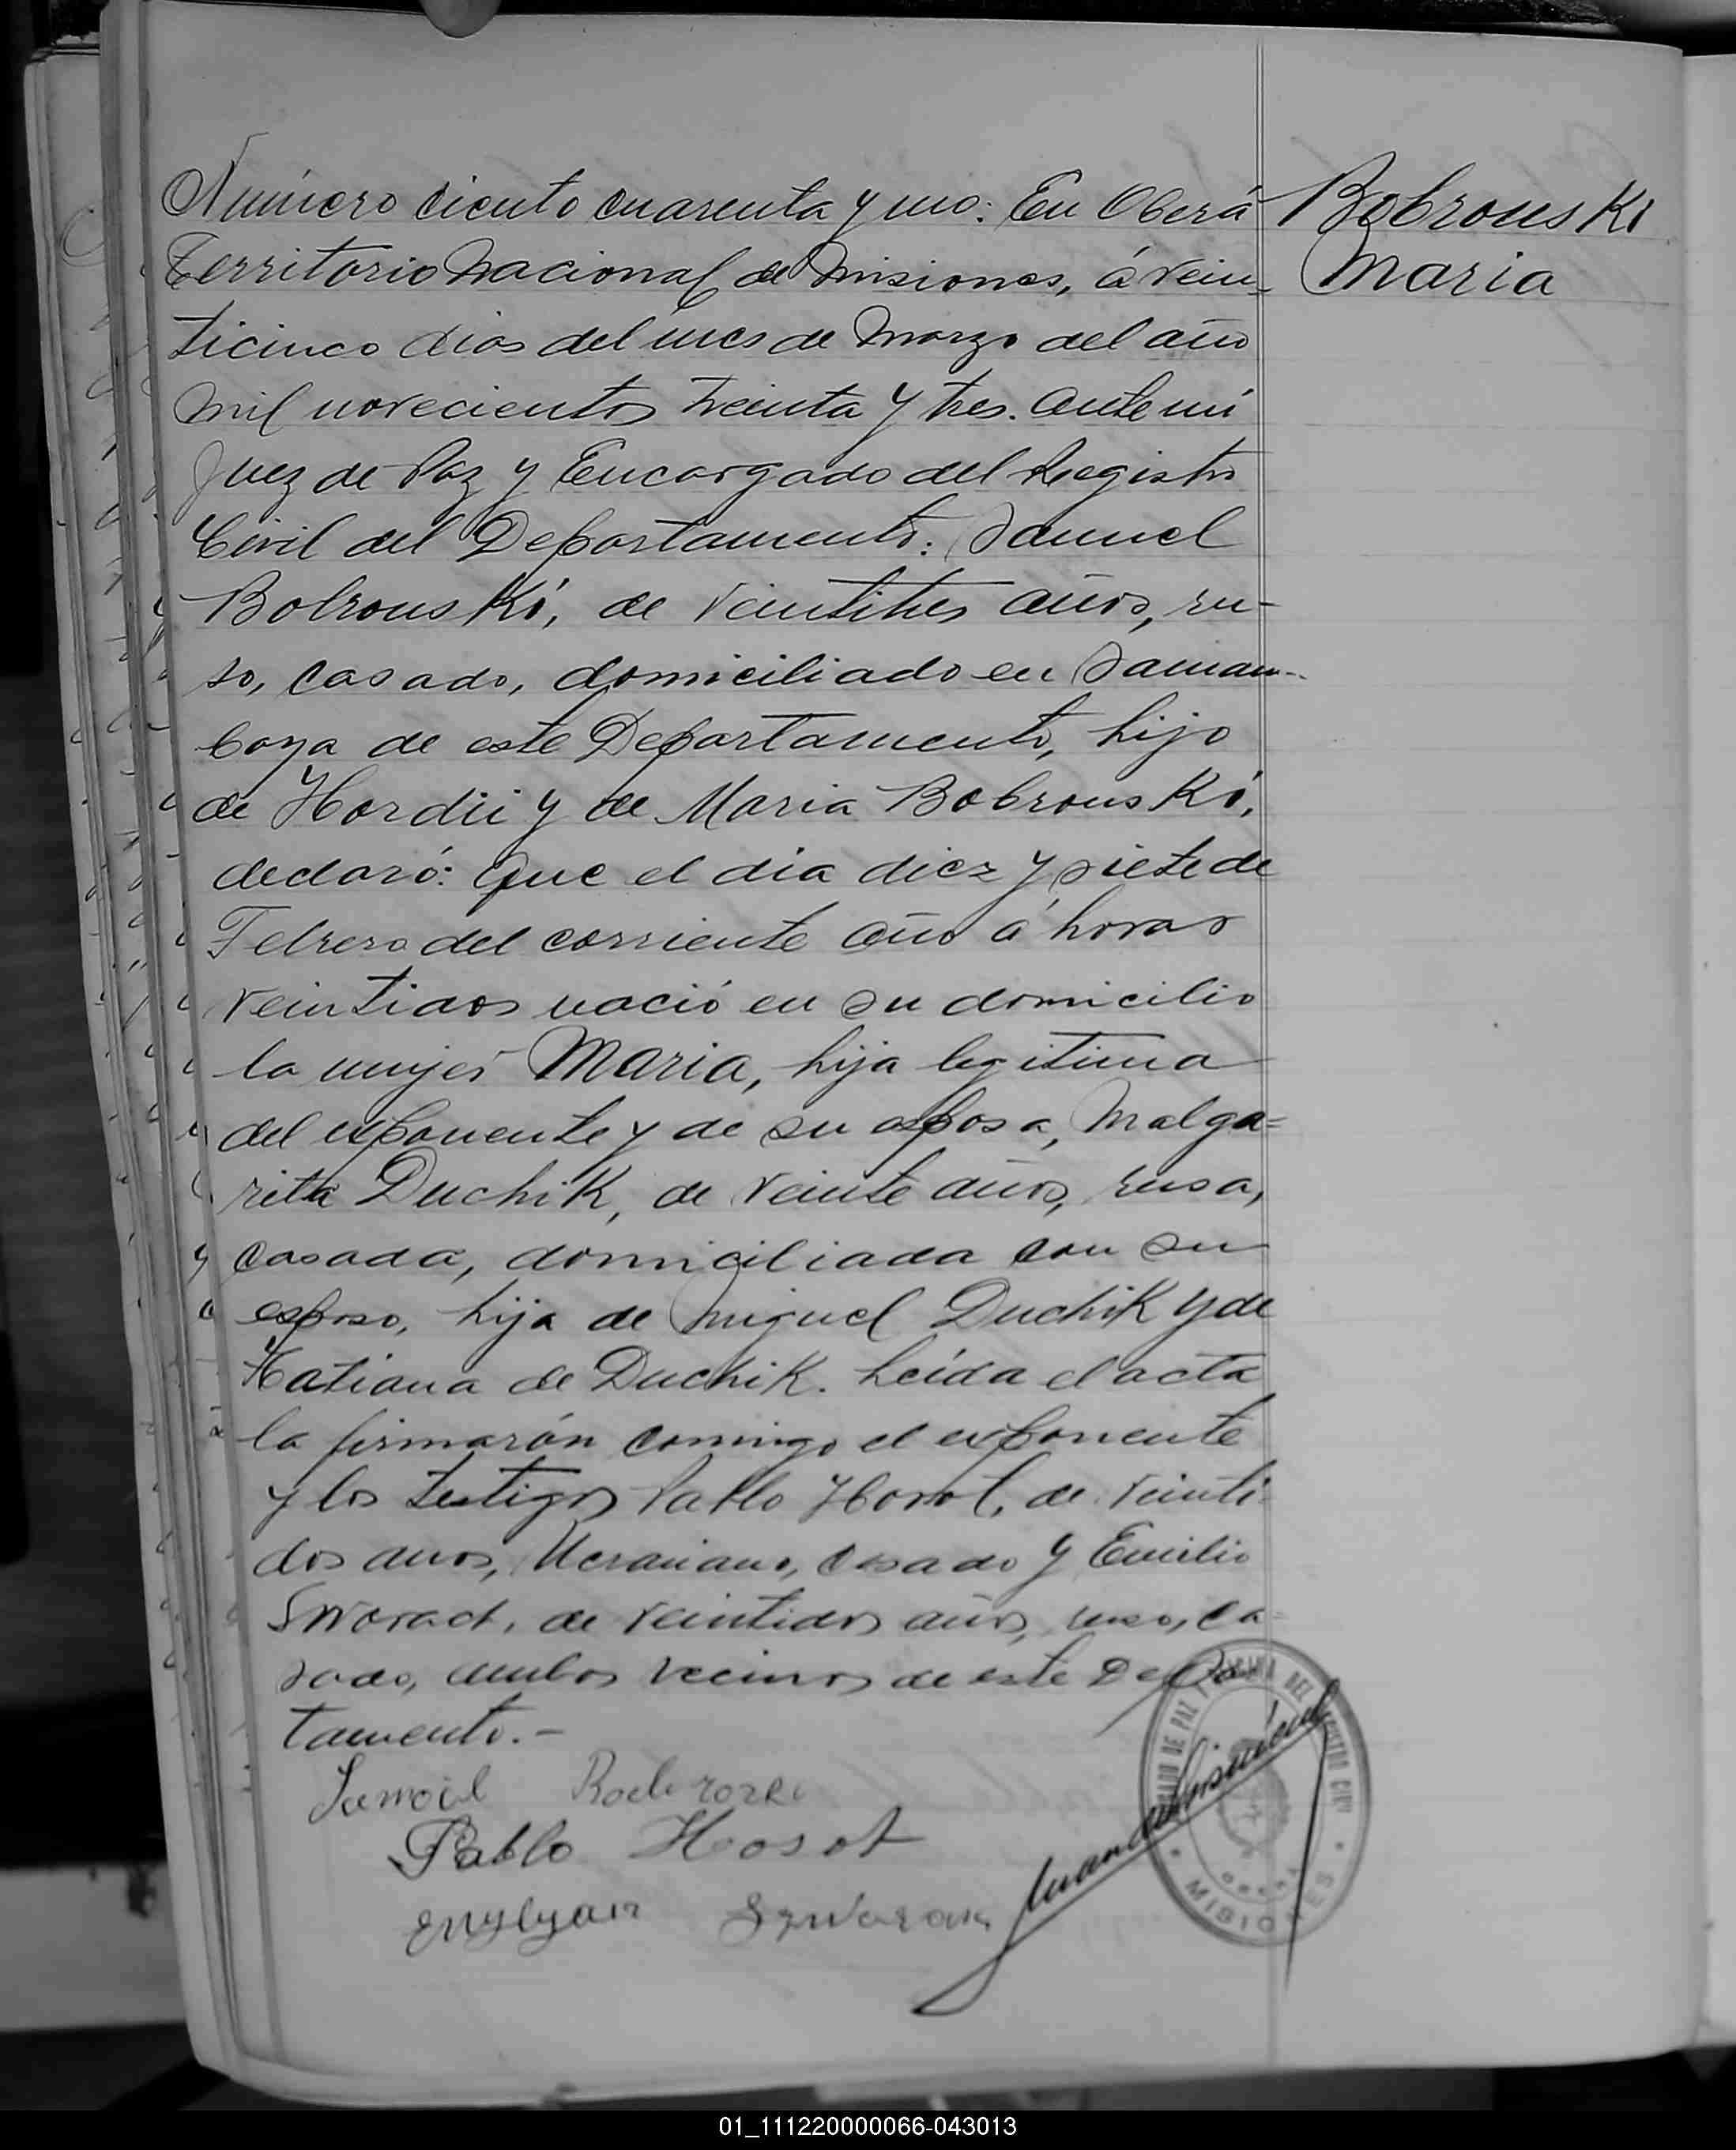 Número ciento cuarenta y uno: En Oberá
Bobrouski
Territorio Nacional de Misiones, á vein-
Maria
ticinco dias del mes de Marzo del año
mil novecientos treinta y tres. Ante mi
Juez de Paz y Encargado del Registro
Civil del Departamento: Samuel
Bobrouski, de veintitres años, ru-
so, casado, domiciliado en Samam-
baya de este Departamento, hijo
de Hordii y de Maria Bobrouski,
declaró: Que el dia diez y siete de
Febrero del corriente año á horas
veintidos nació en su domicilio
la mujer Maria, hija legitima
del exponente y de su esposa, Malga=
rita Duchik, de veinte años, rusa,
casada, domiciliada con su
esposo, hija de Miguel Duchik y de
Katiana de Duchik. Leida el acta
la firmarón comigo el exponente
y los testigos Pablo Horot, de veinti-
dos anos, Ucraniano, casado y Emilio
Sworact, de veintidos años, ruso, ca=
sado, ambos vecinos de este Depar
tamento.-
Samoil
Pablo Hosot
JUZGADO DE PAZ Y OFICINA DEL REGISTRO CIVIL
OBERÁ
MISIONES
01_111220000066-043013